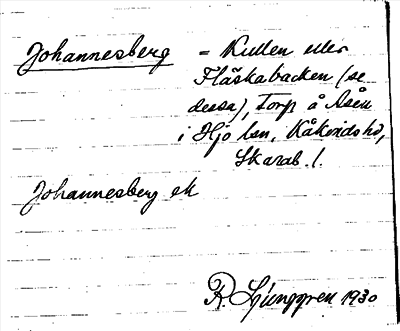 Johannesberg = Kullen eller
Flåskabacken (se
dessa), Torp å Åsén
i Hjo lsn, Kåkinds hd,
Skarab. l.
Johannesberg ek
R. Ljunggren 1930